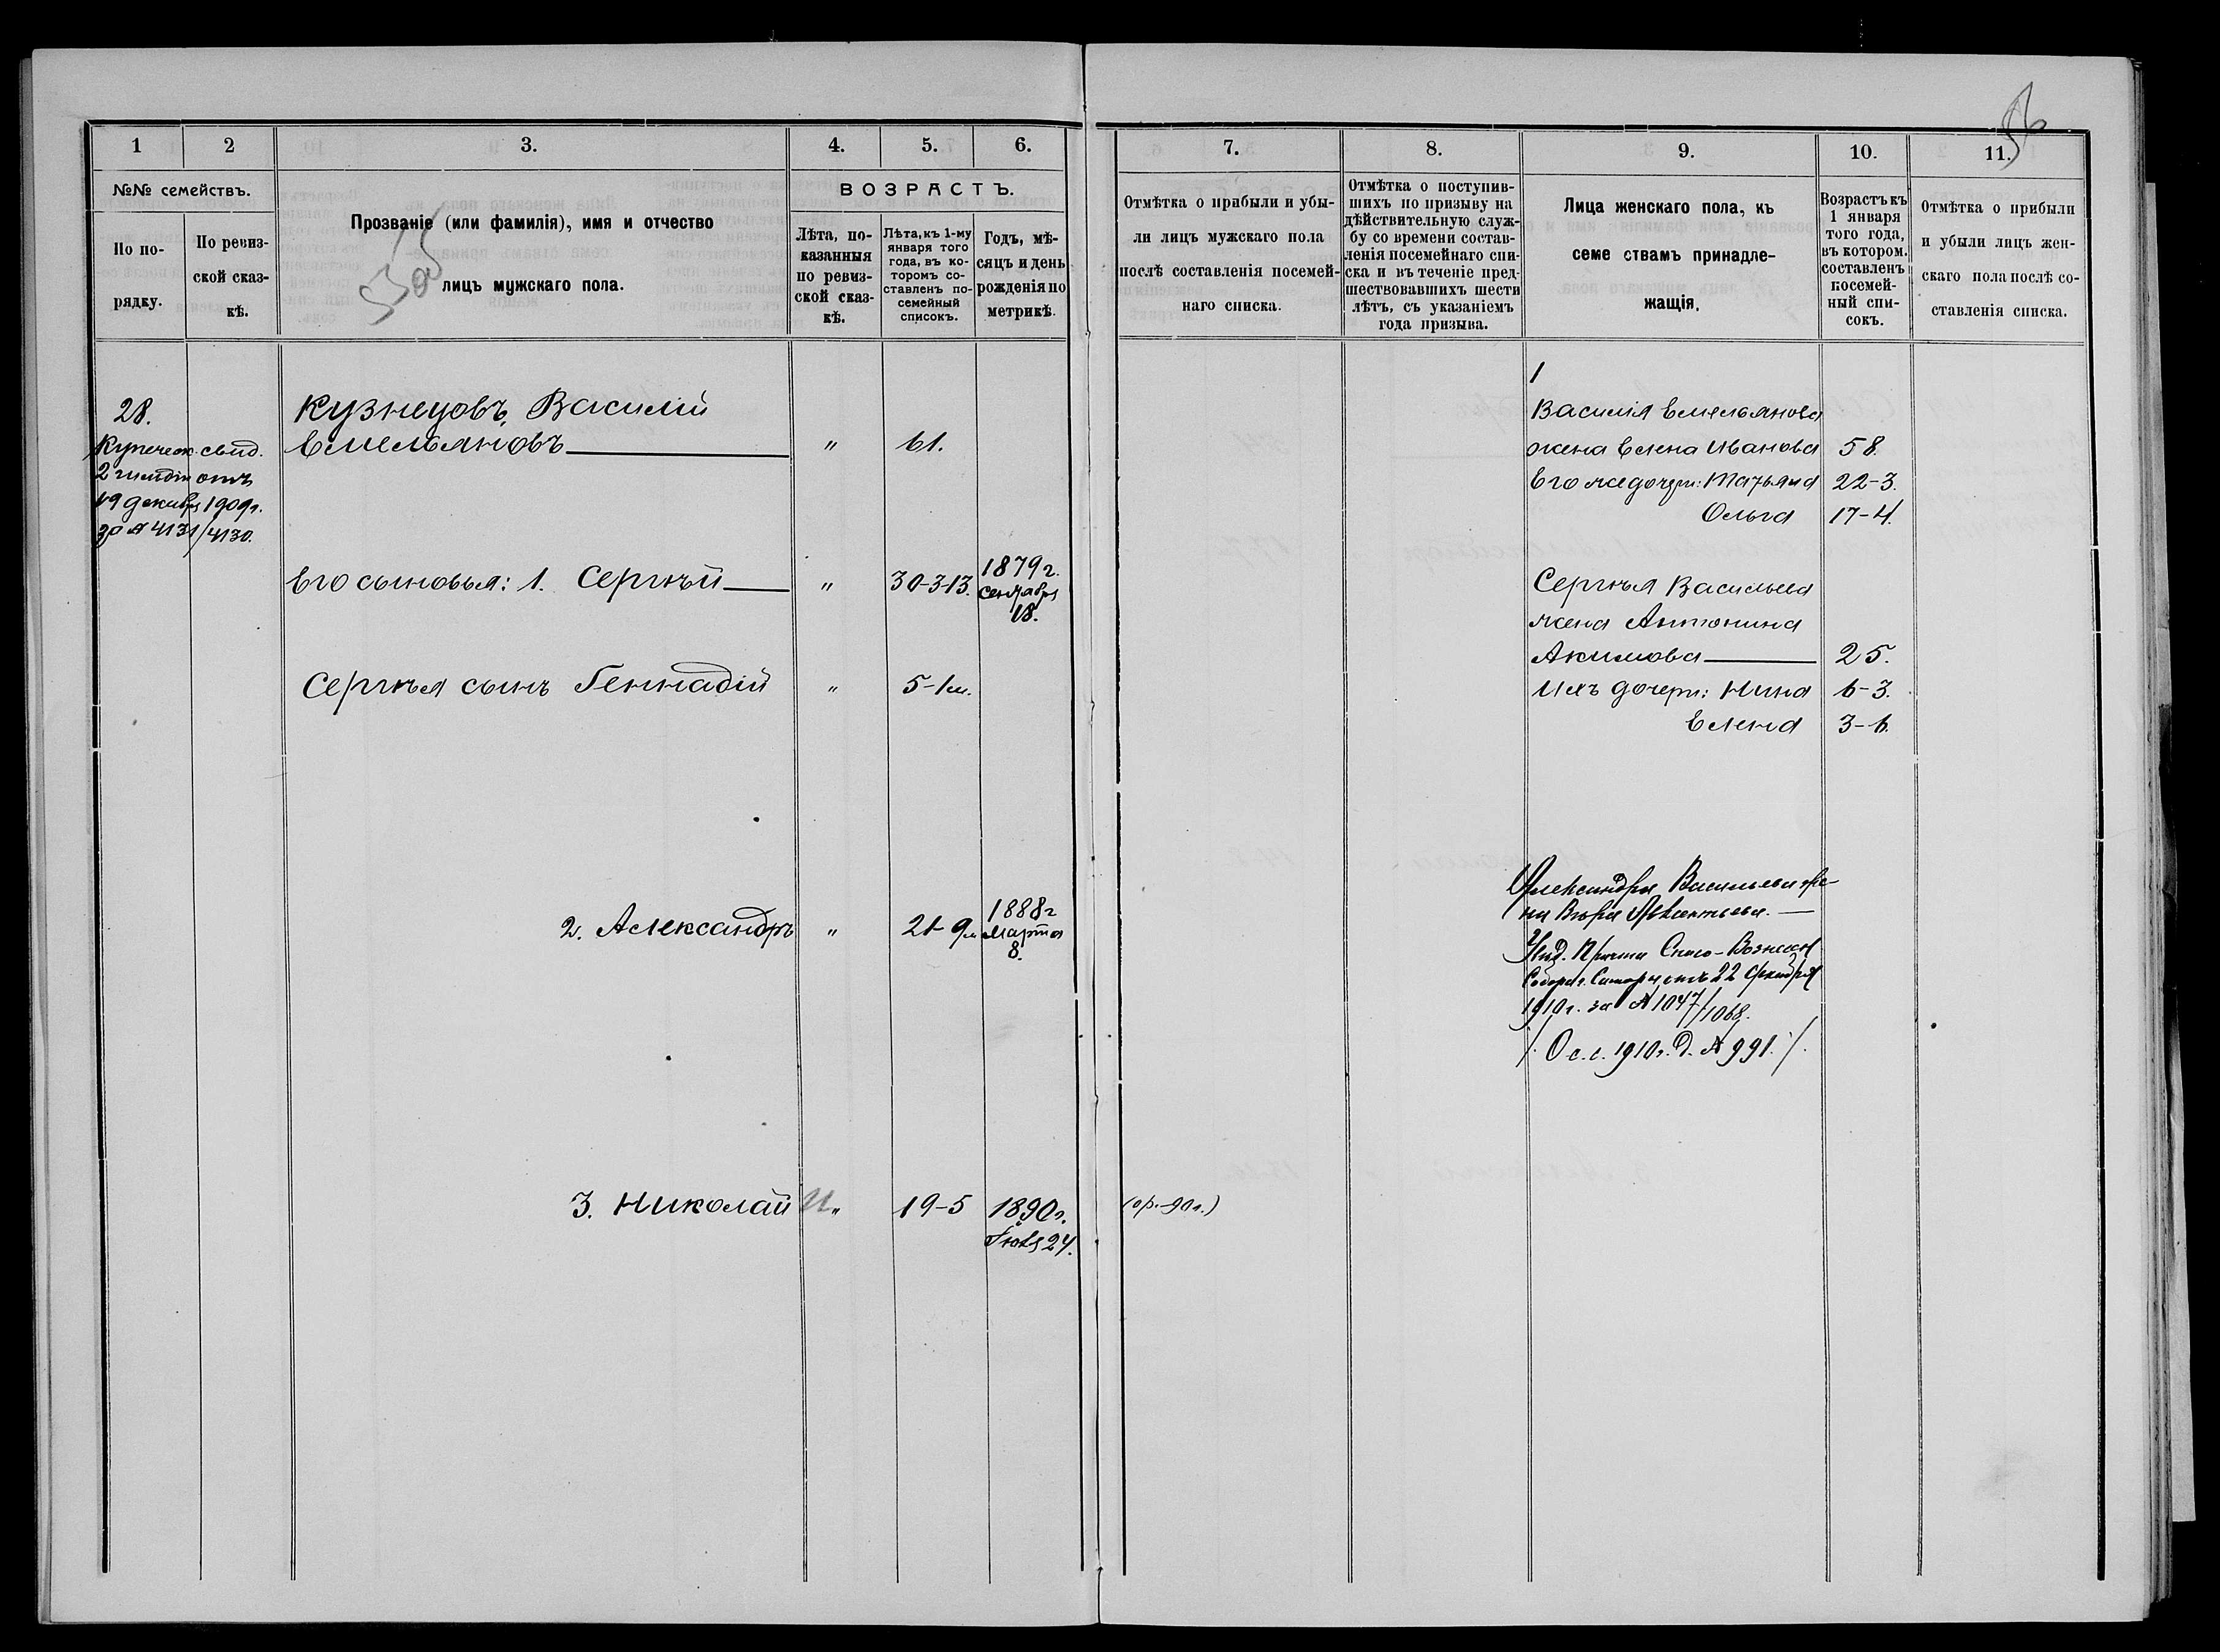 56
1
2
3.
4.
5.
6.
№№ семействъ.
ВОЗРАСТЪ.
По по-
рядку.
По ревиз-
ской сказ-
кѣ.
Прозваніе (или фамилія), имя и отчество
лицъ мужскаго пола.
Лѣта, по-
казанныя
по ревиз-
ской сказ-
кѣ.
Лѣта, къ 1-му
января того
года, въ ко-
торомъ со-
ставленъ по-
семейный
списокъ.
Годъ, мѣ-
сяцъ и день
рожденія по
метрикѣ.
28.
Купеческ. свид.
2 гильдіи отъ
19 декабря 1909г.
за № 4131/4130.
Кузнецовъ, Василій
Емельяновъ " 61.
Его сыновья: 1. Сергѣй " 30-3-13. 1879 г.
Сентября
18.
Сергѣя сынъ Геннадій " 5-1м.
2. Александръ " 21-9м 1888г
Марта
8.
3. Николай " 19-5 1890г.
Іюля 24.
7.
8.
9.
10.
11.
Отмѣтка о прибыли и убы-
ли лицъ мужскаго пола
послѣ составленія посемей-
наго списка.
Отмѣтка о поступив-
шихъ по призыву на
дѣйствительную служ-
бу со времени состав-
ленія посемейнаго спи-
ска и въ теченіе пред-
шествовавшихъ шести
лѣтъ, съ указаніемъ
года призыва.
Лица женскаго пола, къ
семе ствамъ принадле-
жащія.
Возрастъ къ
1 января
того года,
въ котором.
составленъ
посемей-
ный спи-
сокъ.
Отмѣтка о прибыли
и убыли лицъ жен-
скаго пола послѣ со-
ставленія списка.
1
Василія Емельянова
жена Елена Иванова 58.
Его же дочери: Татьяна 22-3.
Ольга 17-4.
Сергѣя Васильева
жена Антонина
Акимова 25.
Ихъ дочери: Нина 6-3.
Елена 3-6.
Александра Васильева же-
на Вѣра
Причта Спасо-Вознесен.
Собора г. Самары отъ 22 Октября
1910г. за № 1047/1068.
/. О с.с. 1910г. д. № 991. /.
(ор.-90г.)